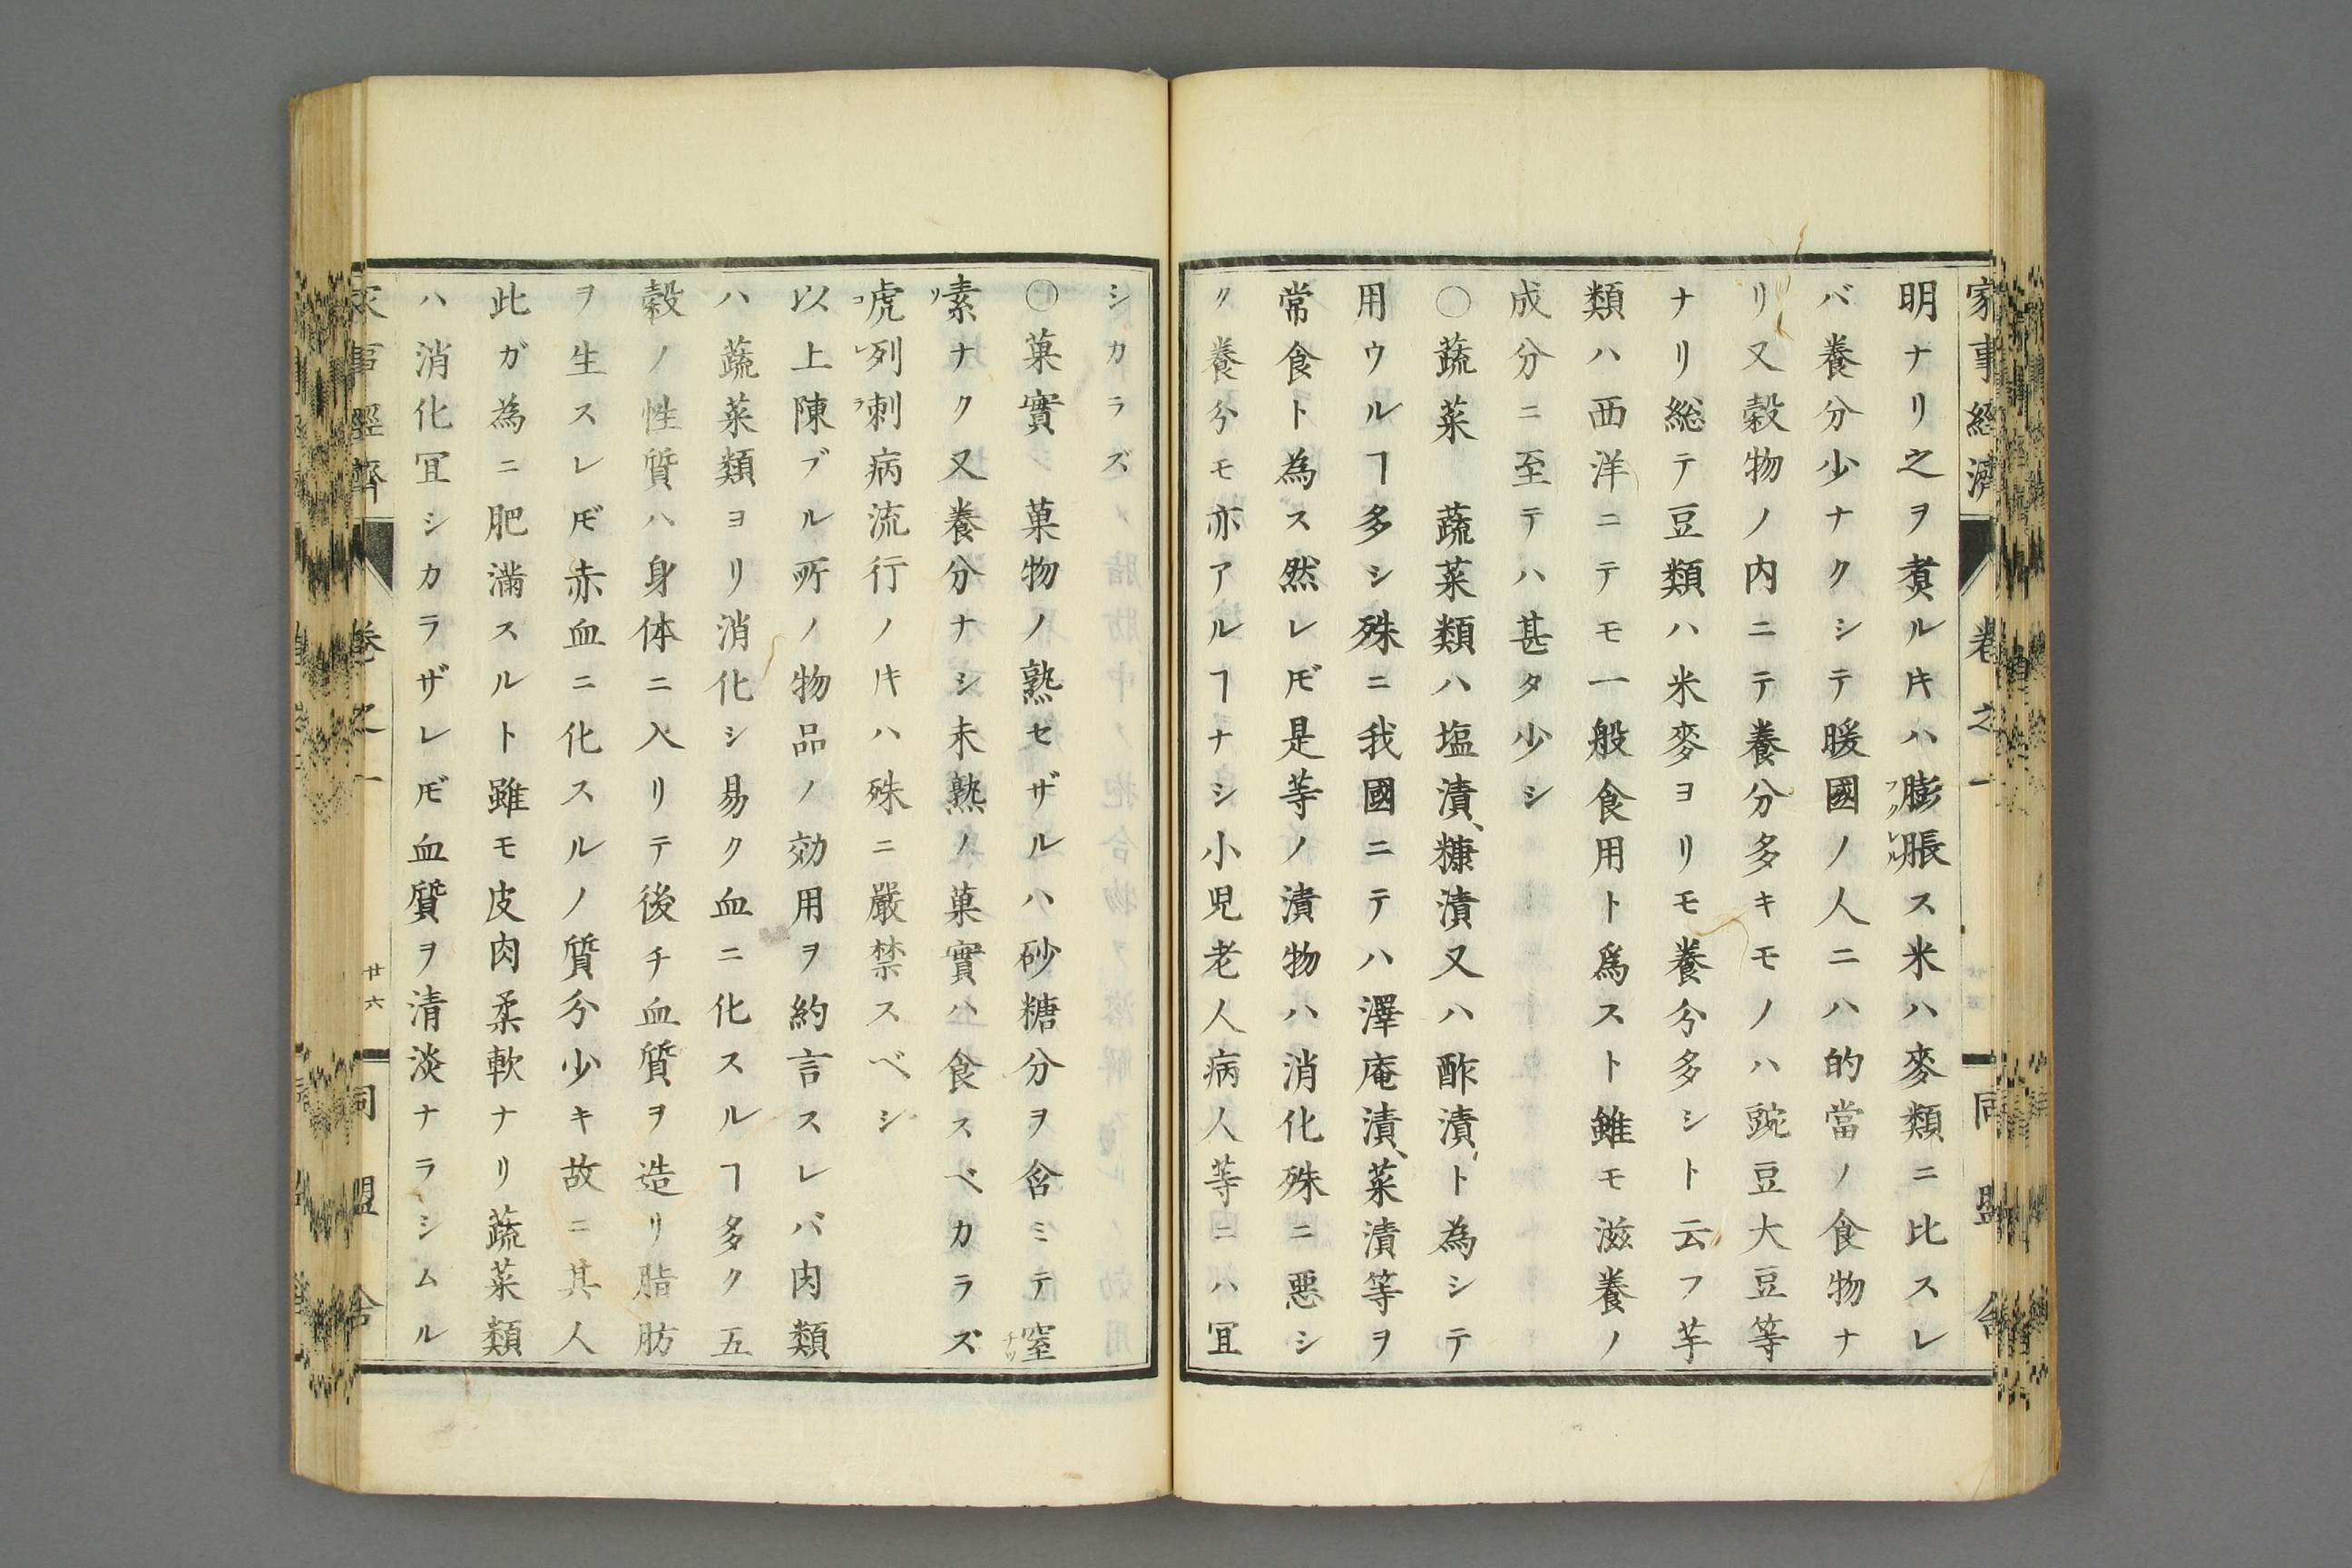 家事経濟 卷之一 同盟舎
明ナリ之ヲ煑ルキハ膨脹ス米ハ麥類ニ比スレ
フクレル
バ養分少ナクシテ暖國ノ人ニハ的當ノ食物ナ
リ又穀物ノ内ニテ養分多キモノハ豌豆大豆等
ナリ総テ豆類ハ米麥ヨリモ養分多シト云フ芋
類ハ西洋ニテモ一般食用ト爲スト雖モ滋養ノ
成分ニ至テハ甚タ少シ
〇蔬菜　蔬菜類ハ塩漬、糠漬又ハ酢漬、ト為シテ
用ウルヿ多シ殊ニ我國ニテハ澤庵漬、菜漬等ヲ
常食ト為ス然レ𪜈是等ノ漬物ハ消化殊ニ惡シ
ク養分モ亦アルヿナシ小児老人病人等ニハ冝
シカラズ
〇菓實　菓物ノ熟セザルハ砂糖分ヲ含ミテ窒
チツ
素ナク又養分ナシ未熟ノ菓實ハ食スベカラズ
ソ
虎列刺病流行ノキハ殊ニ嚴禁スベシ
コレラ
以上陳ブル所ノ物品ノ効用ヲ約言スレバ肉類
ハ蔬菜類ヨリ消化シ易ク血ニ化スルヿ多ク五
穀ノ性質ハ身体ニ入リテ後チ血質ヲ造リ脂肪
ヲ生スレ𪜈赤血ニ化スルノ質分少キ故ニ其人
此ガ為ニ肥滿スルト雖モ皮肉柔軟ナリ蔬菜類
ハ消化冝シカラザレ𪜈血質ヲ清淡ナラシムル
家事經濟 卷之一 廿六 同盟舎